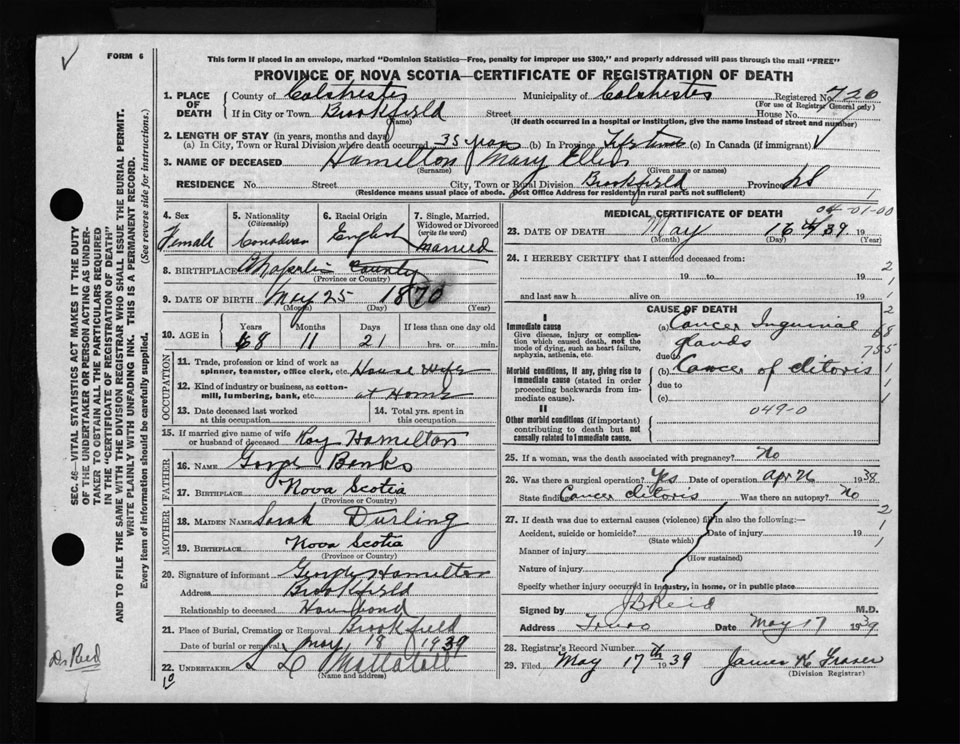 FORM 6
This form if placed in an envelope, marked "Dominion Statistics—Free, penalty for improper use $300," and properly addressed will pass through the mail "FREE"
PROVINCE OF NOVA SCOTIA—CERTIFICATE OF REGISTRATION OF DEATH
SEC. 46—VITAL STATISTICS ACT MAKES IT THE DUTY
OF THE UNDERTAKER OR PERSON ACTING AS UNDER-
TAKER TO OBTAIN ALL THE PARTICULARS REQUIRED
IN THE "CERTIFICATE OF REGISTRATION OF DEATH"
AND TO FILE THE SAME WITH THE DIVISION REGISTRAR WHO SHALL ISSUE THE BURIAL PERMIT.
WRITE PLAINLY WITH UNFADING INK. THIS IS A PERMANENT RECORD.
Every item of information should be carefully supplied. (See reverse side for instructions.)
1. PLACE OF DEATH
County of Colchester Municipality of Colchester Registered No. 720
(For use of Registrar General only)
If in City or Town Brookfield Street House No.
(Name) (If death occurred in a hospital or institution, give the name instead of street and number)
2. LENGTH OF STAY (in years, months and days)
(a) In City, Town or Rural Division where death occurred 35 years (b) In Province Life time (c) In Canada (if immigrant)
3. NAME OF DECEASED Hamilton Mary Ellen
(Surname) (Given name or names)
RESIDENCE No. Street City, Town or Rural Division Brookfield Province NS
(Residence means usual place of abode. Post Office Address for residents in rural parts not sufficient)
4. Sex Female
5. Nationality (Citizenship) Canadian
6. Racial Origin English
7. Single, Married, Widowed or Divorced (write the word) Married
8. BIRTHPLACE County
(Province or Country)
9. DATE OF BIRTH May 25 1870
(Month) (Day) (Year)
10. AGE in Years Months Days If less than one day old
68 11 21 hrs. or min.
OCCUPATION
11. Trade, profession or kind of work as spinner, teamster, office clerk, etc. House Wife
12. Kind of industry or business, as cotton-mill, lumbering, bank, etc. at Home
13. Date deceased last worked at this occupation
14. Total yrs. spent in this occupation
15. If married give name of wife or husband of deceased Roy Hamilton
FATHER
16. NAME George Banks
17. BIRTHPLACE Nova Scotia
(Province or Country)
MOTHER
18. MAIDEN NAME Sarah Durling
19. BIRTHPLACE Nova Scotia
(Province or Country)
20. Signature of informant George Hamilton
Address Brookfield
Relationship to deceased Housbond
21. Place of Burial, Cremation or Removal Brookfield
Date of burial or removal May 18 1939
22. UNDERTAKER
(Name and address)
Dr Reid
10
MEDICAL CERTIFICATE OF DEATH
04-01-00
23. DATE OF DEATH May 16th/39 19
(Month) (Day) (Year)
24. I HEREBY CERTIFY that I attended deceased from:
19 to 19
and last saw h alive on 19
CAUSE OF DEATH
I
Immediate cause
Give disease, injury or complication which caused death, not the mode of dying, such as heart failure, asphyxia, asthenia, etc.
(a) Cancer Inguinal glands
due to
Morbid conditions, if any, giving rise to immediate cause (stated in order proceeding backwards from immediate cause).
(b) Cancer of clitoris
due to
(c)
II
Other morbid conditions (if important) contributing to death but not causally related to immediate cause.
049-0
25. If a woman, was the death associated with pregnancy? No
26. Was there a surgical operation? Yes Date of operation 1938
State findings Cancer clitoris Was there an autopsy? No
27. If death was due to external causes (violence) fill in also the following:—
Accident, suicide or homicide? Date of injury 19
(State which)
Manner of injury
(How sustained)
Nature of injury
Specify whether injury occurred in industry, in home, or in public place
Signed by JB Reid M.D.
Address Truro Date May 17 1939
28. Registrar's Record Number
29. Filed May 17th 1939 James K Fraser
(Division Registrar)